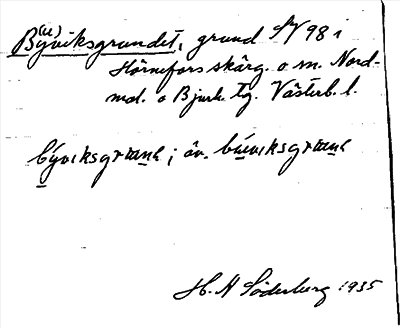 B(u)yviksgrundet, grund SV 98 i
Hörnefors skärg. o sn. Nord-
md. o Bjurh. tg. Västerb. l.
býviksgrɯnḙ; äv. búviksgrɯnḙ
H. A Söderberg 1935